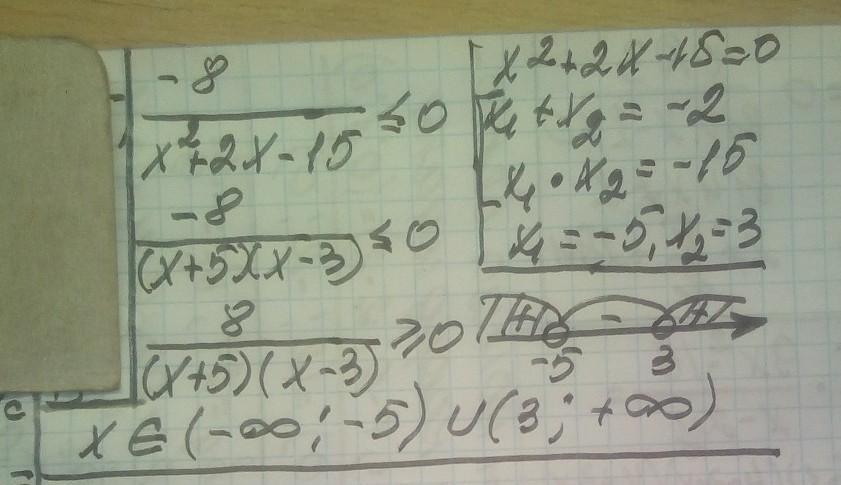 -8
x²+2x-15 ≤ 0
-8
(x+5)(x-3) ≤ 0
8
(x+5)(x-3) ≥ 0
x²+2x-15=0
x₁+x₂ = -2
x₁•x₂ = -15
x₁ = -5, x₂=3
+ - +
-5 3
x ∈ (-∞; -5) ∪ (3; +∞)